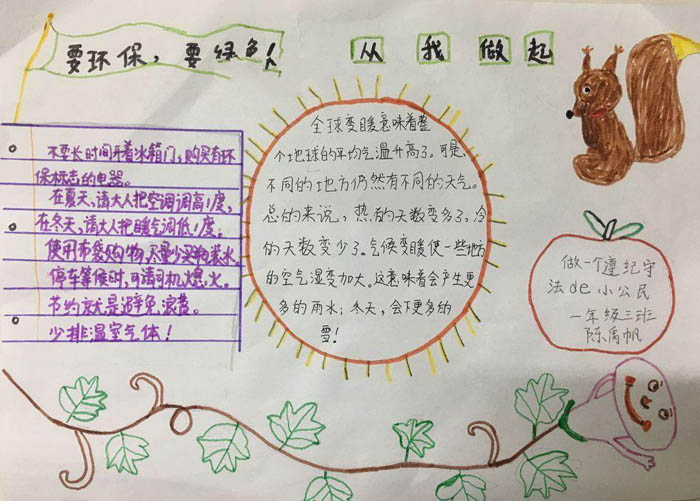 要环保，要绿色！
从我做起
不要长时间开着冰箱门，购买有环
保标志的电器。
在夏天，请大人把空调调高1度，
在冬天，请大人把暖气调低1度。
使用布袋购物，尽量少买瓶装水，
停车等候时，可请司机熄火。
节约就是避免浪费。
少排温室气体！
全球变暖意味着整
个地球的平均气温升高了。可是、
不同的地方仍然有不同的天气。
总的来说，热的天数变多了，冷
的天数变少了。气候变暖使一些地方
的空气湿度加大。这意味着会产生更
多的雨水；冬天，会下更多的
雪！
做一个遵纪守
法de小公民
一年级三班
陈禹帆